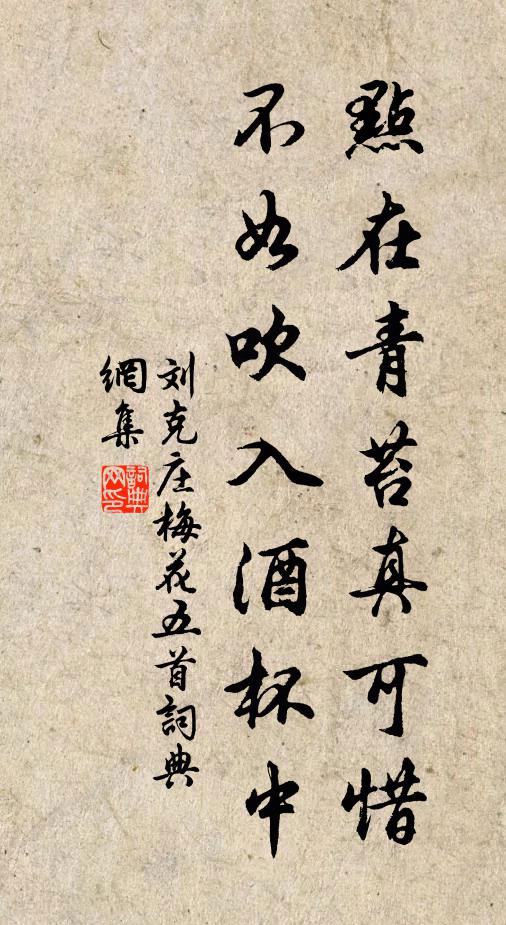 點在青苔真可惜
不如吹入酒杯中
刘克庄梅花五首詞典
網集
詞典
网印